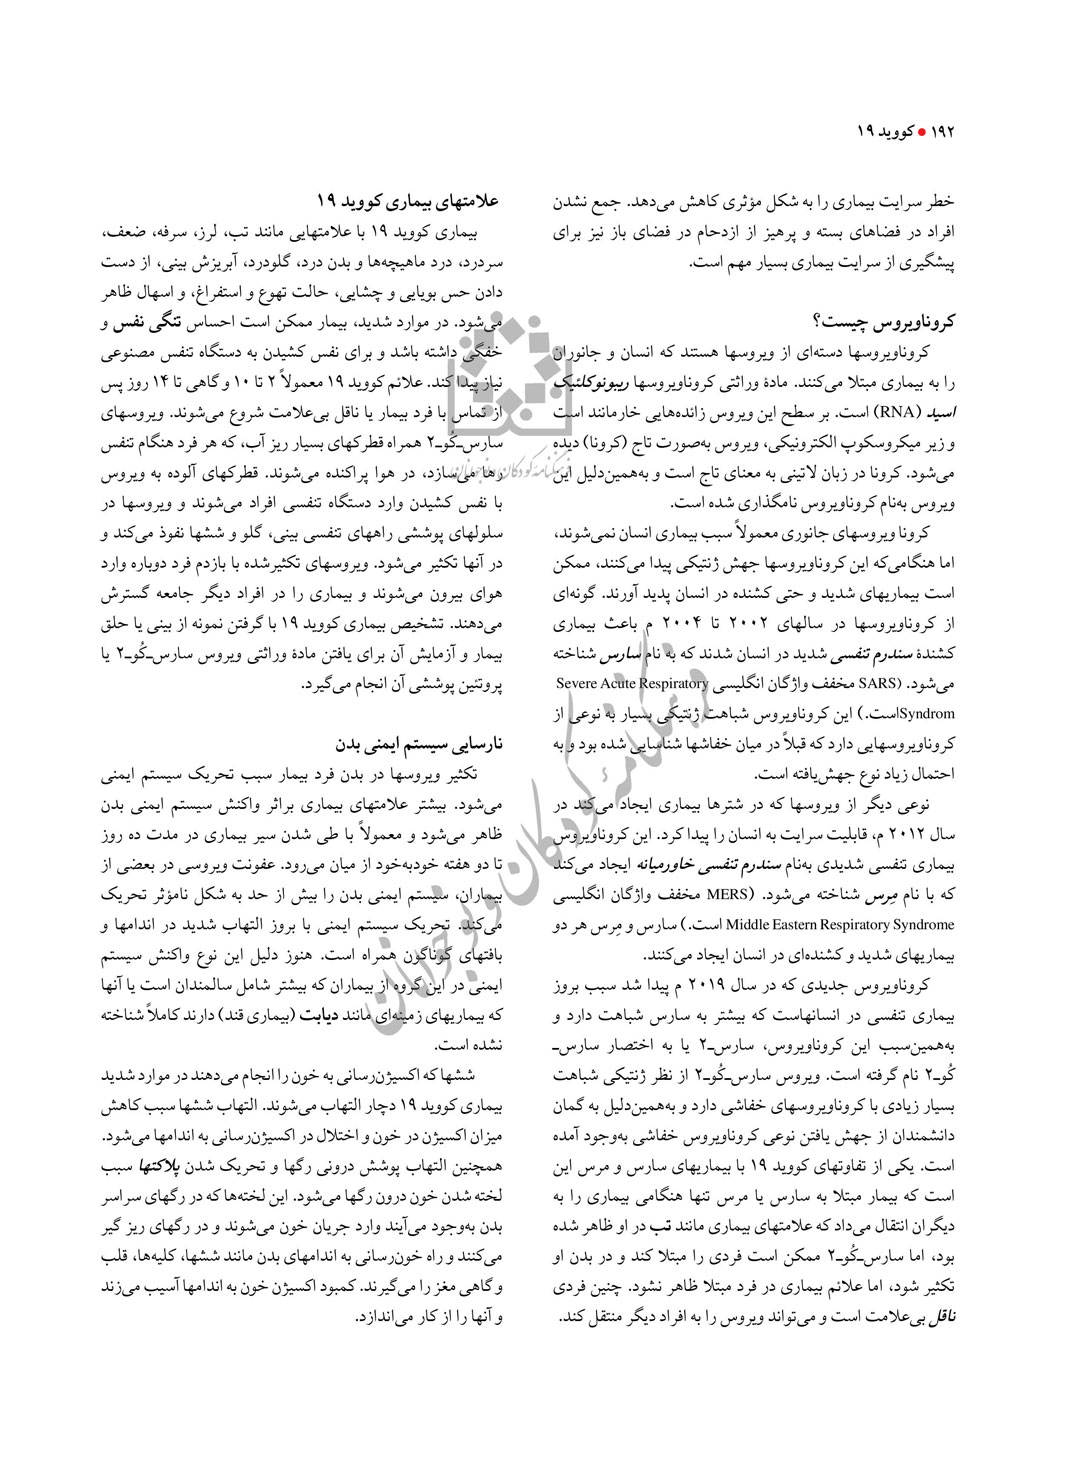 ۱۹۲ • کووید ۱۹
خطر سرایت بیماری را به شکل مؤثری کاهش می‌دهد. جمع نشدن
افراد در فضاهای بسته و پرهیز از ازدحام در فضای باز نیز برای
پیشگیری از سرایت بیماری بسیار مهم است.
کروناویروس چیست؟
کروناویروسها دسته‌ای از ویروسها هستند که انسان و جانوران
را به بیماری مبتلا می‌کنند. مادهٔ وراثتی کروناویروسها ریبونوکلئیک
اسید (RNA) است. بر سطح این ویروس زائده‌هایی خارمانند است
و زیر میکروسکوپ الکترونیکی، ویروس به‌صورت تاج (کرونا) دیده
می‌شود. کرونا در زبان لاتینی به معنای تاج است و به‌همین‌دلیل این
ویروس به‌نام کروناویروس نامگذاری شده است.
کرونا ویروسهای جانوری معمولاً سبب بیماری انسان نمی‌شوند،
اما هنگامی‌که این کروناویروسها جهش ژنتیکی پیدا می‌کنند، ممکن
است بیماریهای شدید و حتی کشنده در انسان پدید آورند. گونه‌ای
از کروناویروسها در سالهای ۲۰۰۲ تا ۲۰۰۴ م باعث بیماری
کشندهٔ سندرم تنفسی شدید در انسان شدند که به نام سارس شناخته
می‌شود. (SARS مخفف واژگان انگلیسی Severe Acute Respiratory
Syndromاست.) این کروناویروس شباهت ژنتیکی بسیار به نوعی از
کروناویروسهایی دارد که قبلاً در میان خفاشها شناسایی شده بود و به
احتمال زیاد نوع جهش‌یافته است.
نوعی دیگر از ویروسها که در شترها بیماری ایجاد می‌کند در
سال ۲۰۱۲ م، قابلیت سرایت به انسان را پیدا کرد. این کروناویروس
بیماری تنفسی شدیدی به‌نام سندرم تنفسی خاورمیانه ایجاد می‌کند
که با نام مِرس شناخته می‌شود. (MERS مخفف واژگان انگلیسی
Middle Eastern Respiratory Syndrome است.) سارس و مِرس هر دو
بیماریهای شدید و کشنده‌ای در انسان ایجاد می‌کنند.
کروناویروس جدیدی که در سال ۲۰۱۹ م پیدا شد سبب بروز
بیماری تنفسی در انسانهاست که بیشتر به سارس شباهت دارد و
به‌همین‌سبب این کروناویروس، سارس‌ـ۲ یا به اختصار سارس‌ـ
کُوـ۲ نام گرفته است. ویروس سارس‌ـکُوـ۲ از نظر ژنتیکی شباهت
بسیار زیادی با کروناویروسهای خفاشی دارد و به‌همین‌دلیل به گمان
دانشمندان از جهش یافتن نوعی کروناویروس خفاشی به‌وجود آمده
است. یکی از تفاوتهای کووید ۱۹ با بیماریهای سارس و مرس این
است که بیمار مبتلا به سارس یا مرس تنها هنگامی بیماری را به
دیگران انتقال می‌داد که علامتهای بیماری مانند تب در او ظاهر شده
بود، اما سارس‌ـکُوـ۲ ممکن است فردی را مبتلا کند و در بدن او
تکثیر شود، اما علائم بیماری در فرد مبتلا ظاهر نشود. چنین فردی
ناقل بی‌علامت است و می‌تواند ویروس را به افراد دیگر منتقل کند.
علامتهای بیماری کووید ۱۹
بیماری کووید ۱۹ با علامتهایی مانند تب، لرز، سرفه، ضعف،
سردرد، درد ماهیچه‌ها و بدن درد، گلودرد، آبریزش بینی، از دست
دادن حس بویایی و چشایی، حالت تهوع و استفراغ، و اسهال ظاهر
می‌شود. در موارد شدید، بیمار ممکن است احساس تنگی نفس و
خفگی داشته باشد و برای نفس کشیدن به دستگاه تنفس مصنوعی
نیاز پیدا کند. علائم کووید ۱۹ معمولاً ۲ تا ۱۰ و گاهی تا ۱۴ روز پس
از تماس با فرد بیمار یا ناقل بی‌علامت شروع می‌شوند. ویروسهای
سارس‌ـکُوـ۲ همراه قطرکهای بسیار ریز آب، که هر فرد هنگام تنفس
رها می‌سازد، در هوا پراکنده می‌شوند. قطرکهای آلوده به ویروس
با نفس کشیدن وارد دستگاه تنفسی افراد می‌شوند و ویروسها در
سلولهای پوششی راههای تنفسی بینی، گلو و ششها نفوذ می‌کند و
در آنها تکثیر می‌شود. ویروسهای تکثیرشده با بازدم فرد دوباره وارد
هوای بیرون می‌شوند و بیماری را در افراد دیگر جامعه گسترش
می‌دهند. تشخیص بیماری کووید ۱۹ با گرفتن نمونه از بینی یا حلق
بیمار و آزمایش آن برای یافتن مادهٔ وراثتی ویروس سارس‌ـکُوـ۲ یا
پروتئین پوششی آن انجام می‌گیرد.
نارسایی سیستم ایمنی بدن
تکثیر ویروسها در بدن فرد بیمار سبب تحریک سیستم ایمنی
می‌شود. بیشتر علامتهای بیماری براثر واکنش سیستم ایمنی بدن
ظاهر می‌شود و معمولاً با طی شدن سیر بیماری در مدت ده روز
تا دو هفته خودبه‌خود از میان می‌رود. عفونت ویروسی در بعضی از
بیماران، سیستم ایمنی بدن را بیش از حد به شکل نامؤثر تحریک
می‌کند. تحریک سیستم ایمنی با بروز التهاب شدید در اندامها و
بافتهای گوناگون همراه است. هنوز دلیل این نوع واکنش سیستم
ایمنی در این گروه از بیماران که بیشتر شامل سالمندان است یا آنها
که بیماریهای زمینه‌ای مانند دیابت (بیماری قند) دارند کاملاً شناخته
نشده است.
ششها که اکسیژن‌رسانی به خون را انجام می‌دهند در موارد شدید
بیماری کووید ۱۹ دچار التهاب می‌شوند. التهاب ششها سبب کاهش
میزان اکسیژن در خون و اختلال در اکسیژن‌رسانی به اندامها می‌شود.
همچنین التهاب پوشش درونی رگها و تحریک شدن پلاکتها سبب
لخته شدن خون درون رگها می‌شود. این لخته‌ها که در رگهای سراسر
بدن به‌وجود می‌آیند وارد جریان خون می‌شوند و در رگهای ریز گیر
می‌کنند و راه خون‌رسانی به اندامهای بدن مانند ششها، کلیه‌ها، قلب
و گاهی مغز را می‌گیرند. کمبود اکسیژن خون به اندامها آسیب می‌زند
و آنها را از کار می‌اندازد.
فرهنگنامهٔ کودکان و نوجوانان
فرهنگنامهٔ کودکان و نوجوانان